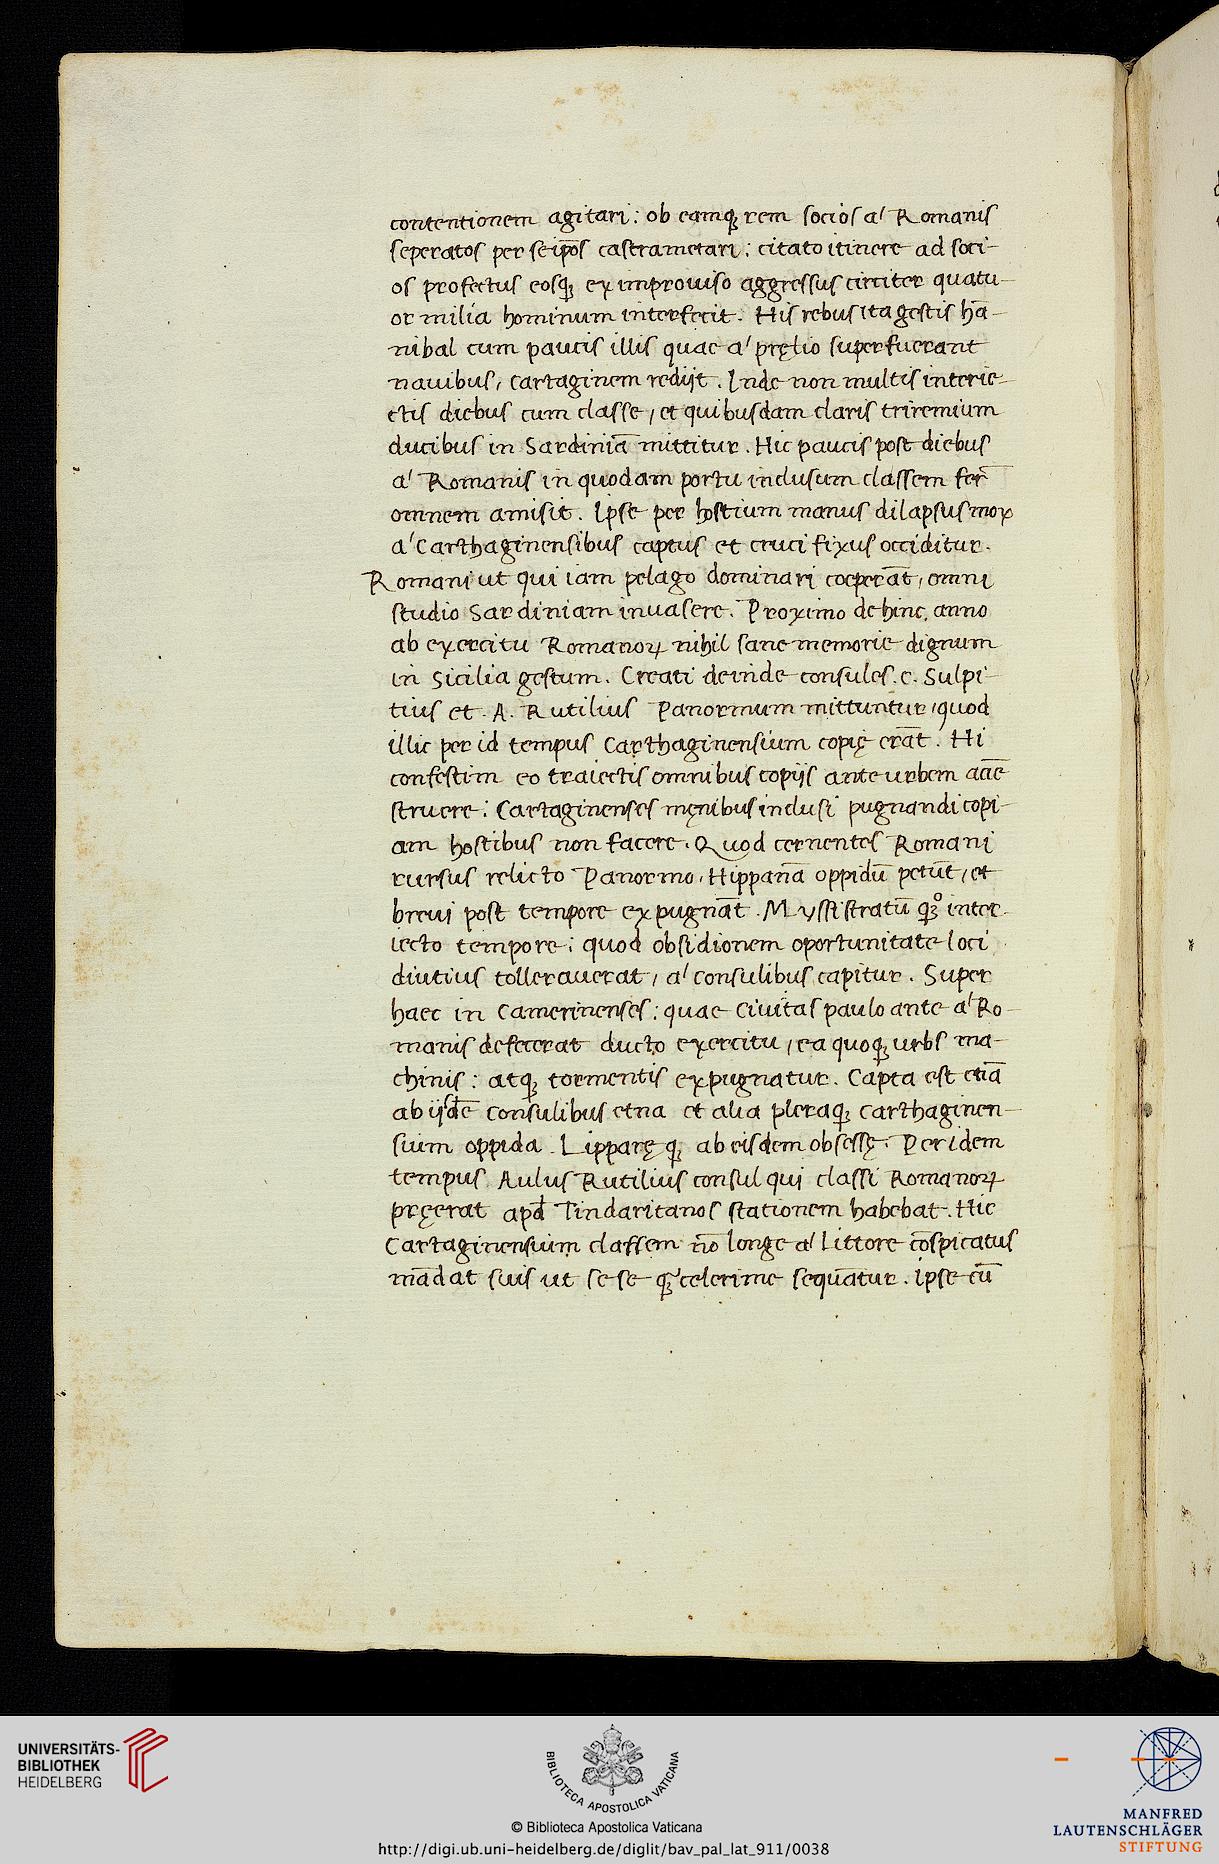 contentionem agitari: ob eamq; rem socios a' Romanis
seperatos per seip̄os castrametari: citato itinere ad soci-
os profectus eosq; ex improuiso aggressus circiter quatu-
or milia hominum interfecit. His rebus ita gestis hā-
nibal cum paucis illis quae a' pręlio superfuerant
nauibus, cartaginem redijt. Inde non multis interie-
ctis diebus cum classe, et quibusdam claris triremium
ducibus in Sardiniā mittitur. Hic paucis post diebus
a' Romanis in quodam portu inclusum classem fer̄
omnem amisit. Ipse per hostium manus dilapsus mox
a' Carthaginensibus captus et cruci fixus occiditur.
Romani ut qui iam pelago dominari coeperāt, omni
studio Sardiniam inuasere. Proximo dehinc anno
ab exercitu Romanoꝝ nihil sane memorie dignum
in Sicilia gestum. Creati deinde consules. c. Sulpi-
tius et. A. Rutilius Panormum mittuntur, quod
illic per id tempus Carthaginensium copię erāt. Hi
confestim eo traiectis omnibus copijs ante urbem aciē
struere: Cartaginenses męnibus inclusi pugnandi copi-
am hostibus non facere. Quod cernentes Romani
rursus relicto Panormo, Hippanā oppidū petūt, et
breui post tempore expugnāt. Myssistratū q;° inter-
iecto tempore: quod obsidionem oportunitate loci
diutius tollerauerat, a' consulibus capitur. Super
haec in Camerinenses: quae ciuitas paulo ante a' Ro-
manis defecerat ducto exercitu, ea quoq; urbs ma-
chinis: atq; tormentis expugnatur. Capta est etiā
ab ijsdē consulibus etna et alia pleraq; carthaginen-
sium oppida. Lipparę q; ab eisdem obsessę. Per idem
tempus Aulus Rutilius consul qui classi Romanoꝝ
pręerat apđ Tindaritanos stationem habebat. Hic
Cartaginensium classem nō longe a' littore cōspicatus
mādat suis ut se se q̄; celerime sequātur. ipse cū
UNIVERSITÄTS-
BIBLIOTHEK
HEIDELBERG
BIBLIOTECA APOSTOLICA VATICANA
© Biblioteca Apostolica Vaticana
http://digi.ub.uni-heidelberg.de/diglit/bav_pal_lat_911/0038
MANFRED
LAUTENSCHLÄGER
STIFTUNG